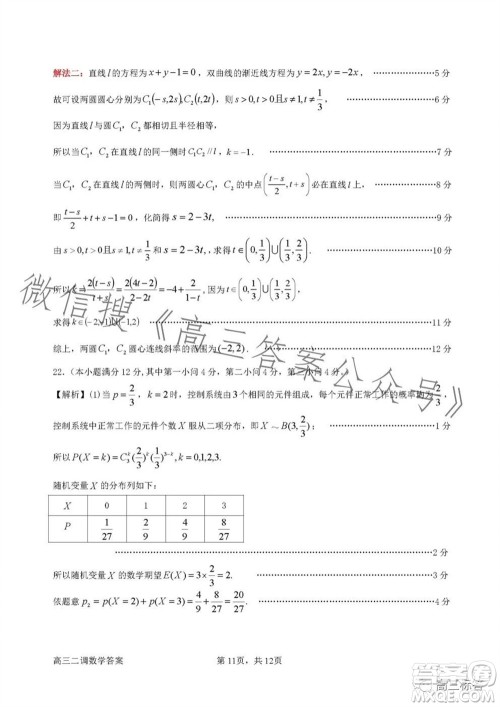 解法二：直线 l 的方程为 x+y−1=0，双曲线的渐近线方程为 y=2x, y=−2x，……………………5 分
故可设两圆圆心分别为 C₁(−s,2s), C₂(t,2t)，则 s>0, t>0 且 s≠1, t≠1/3，……………………6 分
因为直线 l 与两圆 C₁，C₂ 都相切且半径相等，
所以当 C₁，C₂ 在直线 l 的同一侧时 C₁C₂//l，k=−1．……………………7 分
当 C₁，C₂ 在直线 l 的两侧时，则两圆圆心 C₁，C₂ 的中点 ((t−s)/2, t+s) 必在直线 l 上，……………………8 分
即 (t−s)/2+t+s−1=0，化简得 s=2−3t，……………………9 分
由 s>0, t>0 且 s≠1, t≠1/3 和 s=2−3t，求得 t∈(0,1/3)∪(1/3,2/3)．……………………10 分
所以 k=2(t−s)/ =2(4t−2)/ =−4+2/(1−t)，因为 t∈(0,1/3)∪(1/3,2/3)，
求得 k∈(−2,−1)∪(−1,2)……………………11 分
综上，两圆圆心连线斜率的范围为 (−2,2)．……………………12 分
22．（本小题满分 12 分，其中第一小问 4 分，第二小问 4 分，第三小问 4 分．）
【解析】(1) 当 p=2/3，k=2 时，控制系统由 3 个相同的元件组成，每个元件正常工作的概率均为 2/3，
控制系统中正常工作的元件个数 X 服从二项分布，即 X～B(3,2/3)，
所以 P(X=k)=C₃ᵏ(2/3)ᵏ(1/3)³⁻ᵏ, k=0,1,2,3.
随机变量 X 的分布列如下：
X 0 1 2 3
P 1/27 2/9 4/9 8/27
……………………2 分
所以随机变量 X 的数学期望 E(X)=3×2/3=2.……………………3 分
依题意 p₂=p(X=2)+p(X=3)=4/9+8/27=20/27.……………………4 分
微信搜《高三答案公众号》
高三二调数学答案 第 11页，共 12页
高三标答